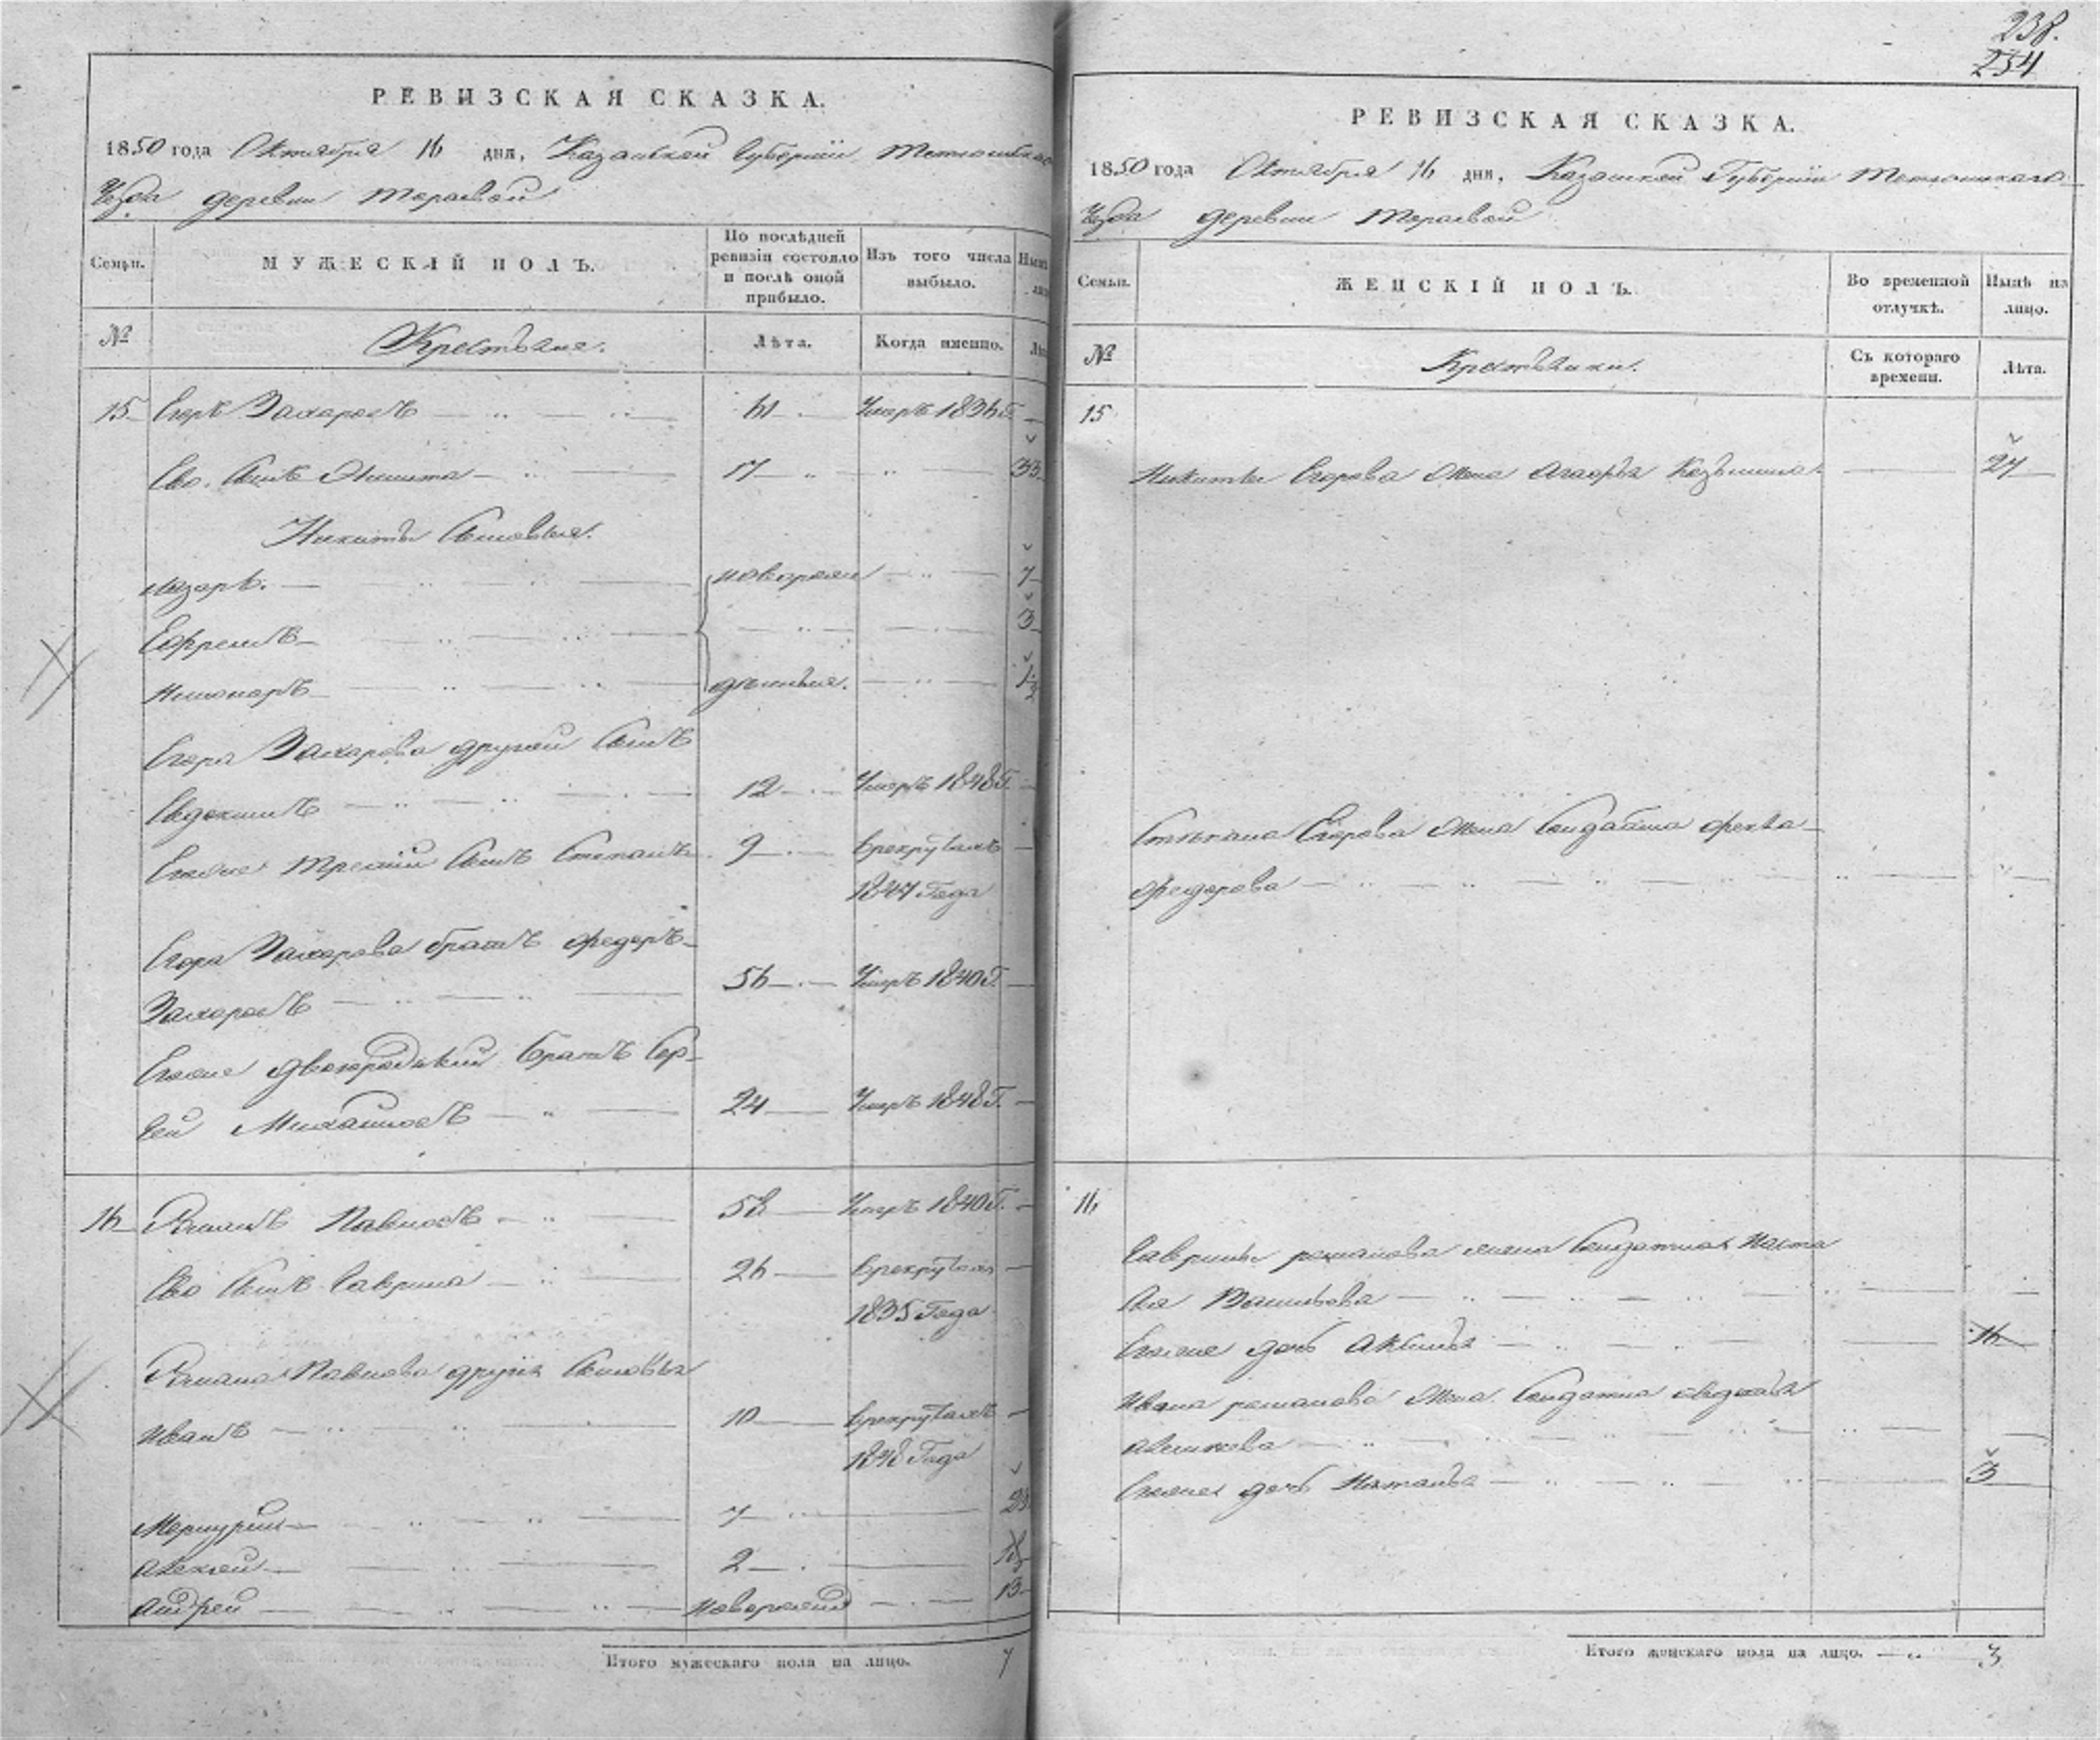 238.
254
РЕВИЗСКАЯ СКАЗКА.
1850 года Октября 16 дня, Казанской Губерніи Тетюшскаго
Уезда деревни Тораевой
Семьи. МУЖЕСКІЙ ПОЛЪ. По послѣдней ревизіи состояло и послѣ оной прибыло. Изъ того числа выбыло. Нынѣ
№ Крестьяне. Лѣта. Когда именно. Лѣта
15 Егоръ Захаровъ 61 Умеръ 1836 Г.
Ево Сынъ Никита 17 33
Никиты Сыновья.
Лазарь. новорож 7
Ефремъ 3
денныя. 1
Егора Захарова другой Сынъ
Евдокимъ 12 Умеръ 1848 Г.
Егоже третий Сынъ Степанъ 9 Врекрутахъ
1847 Года
Егора Захарова братъ Федоръ
Захаровъ 56 Умеръ 1840 Г.
Егоже двоюродный братъ Сер-
гей Михайловъ 24 Умеръ 1848 Г.
16 Романъ Павловъ 58 Умеръ 1840 Г.
Ево Сынъ Гаврила 26 Врекрутах
1835 Года
Романа Павлова другия Сыновья
Иванъ 10 Врекрутахъ
1848 Года
Меркурий 7 23
Алексей 2 18
Андрей новорожден 13
Итого мужескаго пола на лицо. 7
РЕВИЗСКАЯ СКАЗКА.
1850 года Октября 16 дня, Казанской Губерніи Тетюшскаго
Уезда деревни Тораевой
Семьи. ЖЕНСКІЙ ПОЛЪ. Во временной отлучкѣ. Нынѣ на лицо.
№ Крестьянки. Съ котораго времени. Лѣта.
15
Никиты Егорова Жена Агафья Козьмина 27
Степана Егорова Жена Солдатка Фекла
Федорова
16
Гаврилы романова жена Солдатка Наста
Васильева
Егоже дочь Аксинья 16
Ивана романова Жена Солдатка Авдотья
Егоже дочь Наталья 3
Итого женскаго пола на лицо. 3